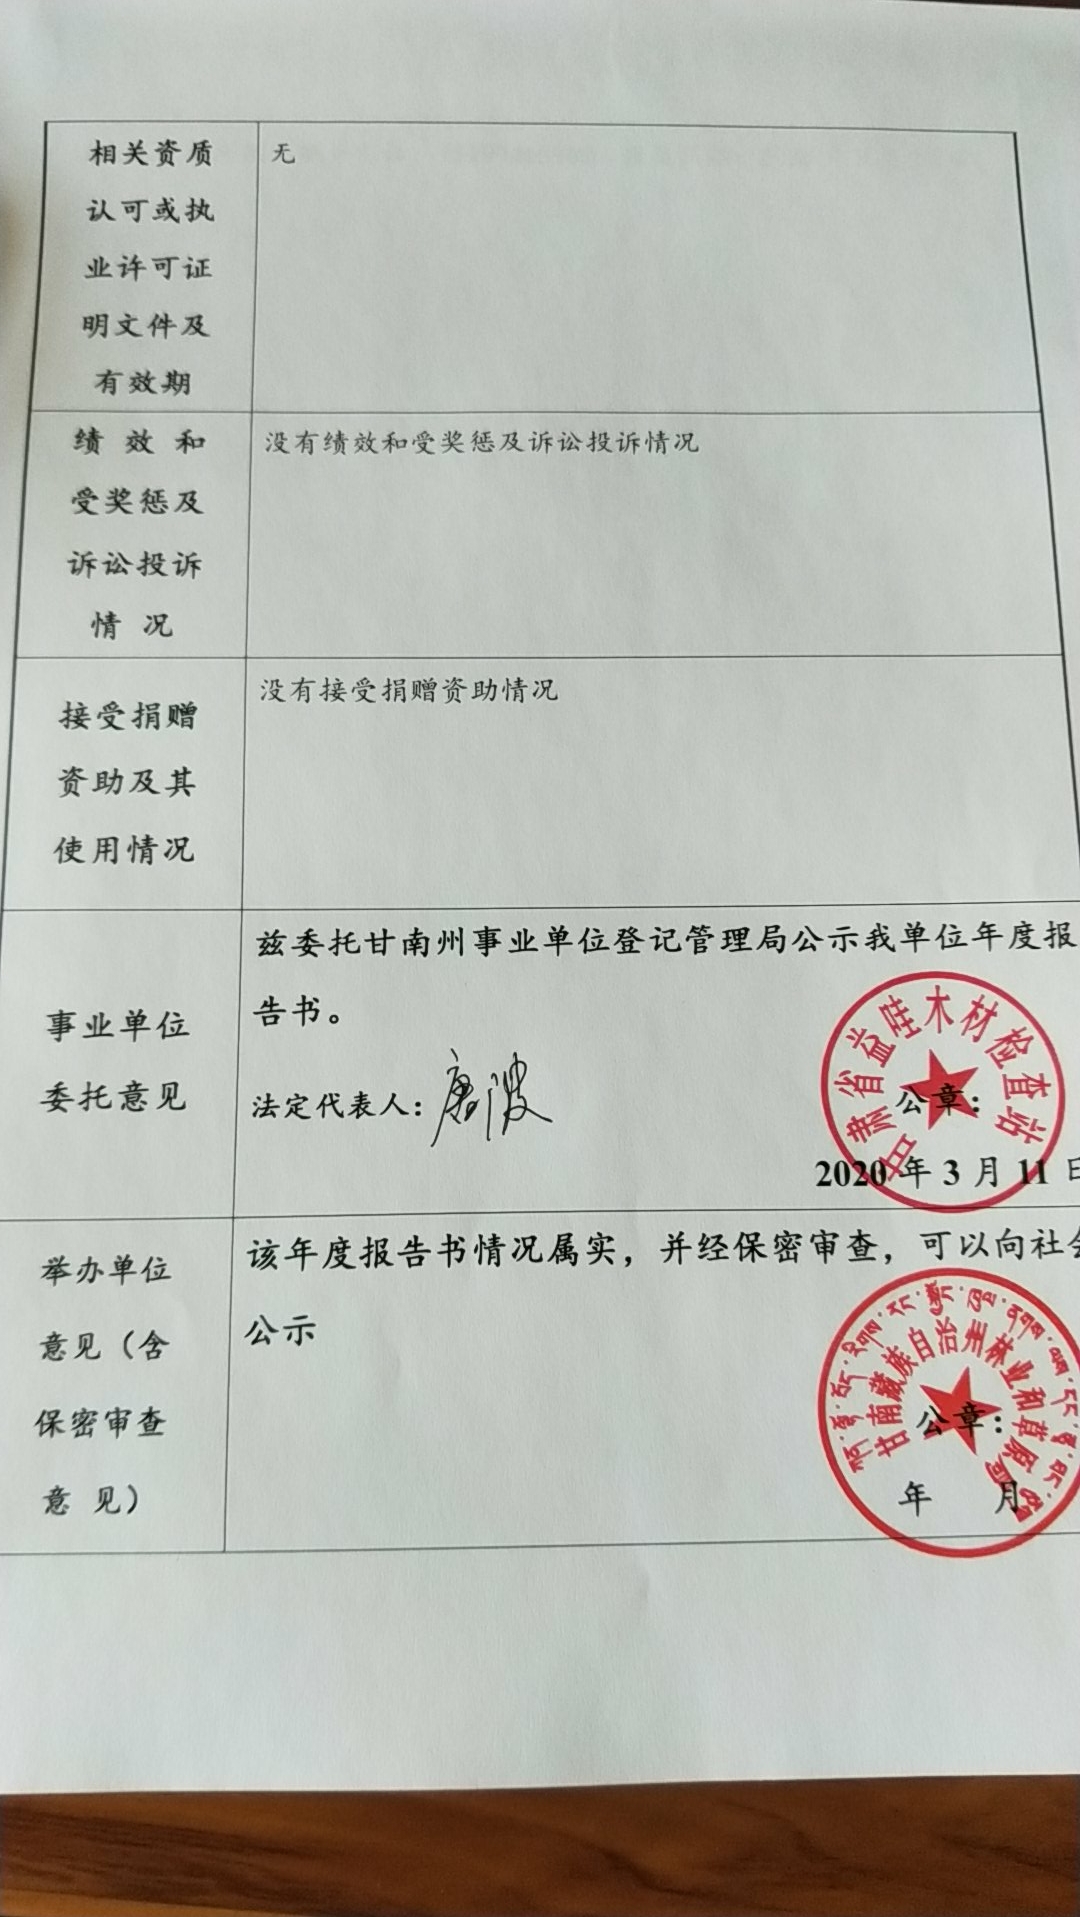 相关资质
认可或执
业许可证
明文件及
有效期
无
绩效和
受奖惩及
诉讼投诉
情况
没有绩效和受奖惩及诉讼投诉情况
接受捐赠
资助及其
使用情况
没有接受捐赠资助情况
事业单位
委托意见
兹委托甘南州事业单位登记管理局公示我单位年度报
告书。
法定代表人：唐波
公章：
甘肃省益哇木材检查站
2020 年 3 月 11 日
举办单位
意见（含
保密审查
意见）
该年度报告书情况属实，并经保密审查，可以向社会
公示
甘南藏族自治州林业和草原局
公章：
年 月